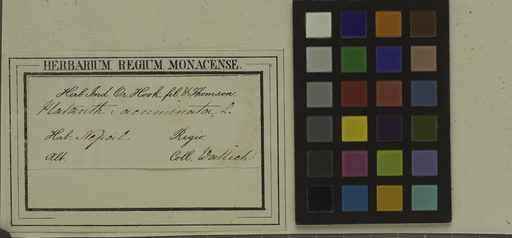 HERBARIUM REGIUM MONACENSE.
Herb. Ind. Or. Hook. fil. & Thomson.
Platanth: acuminata, L.
Hab. Nepal. Regio.
Alt. Coll. Wallich